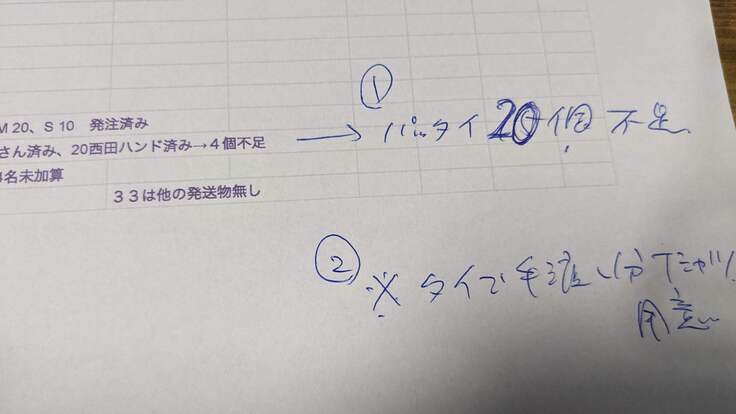 ①
M 20、S 10 発注済み
さん済み、20西田ハンド済み→４個不足
→ パッタイ 20個 不足
名未加算
３３は他の発送物無し
②
※ タイで手渡し分Tシャツ
用意